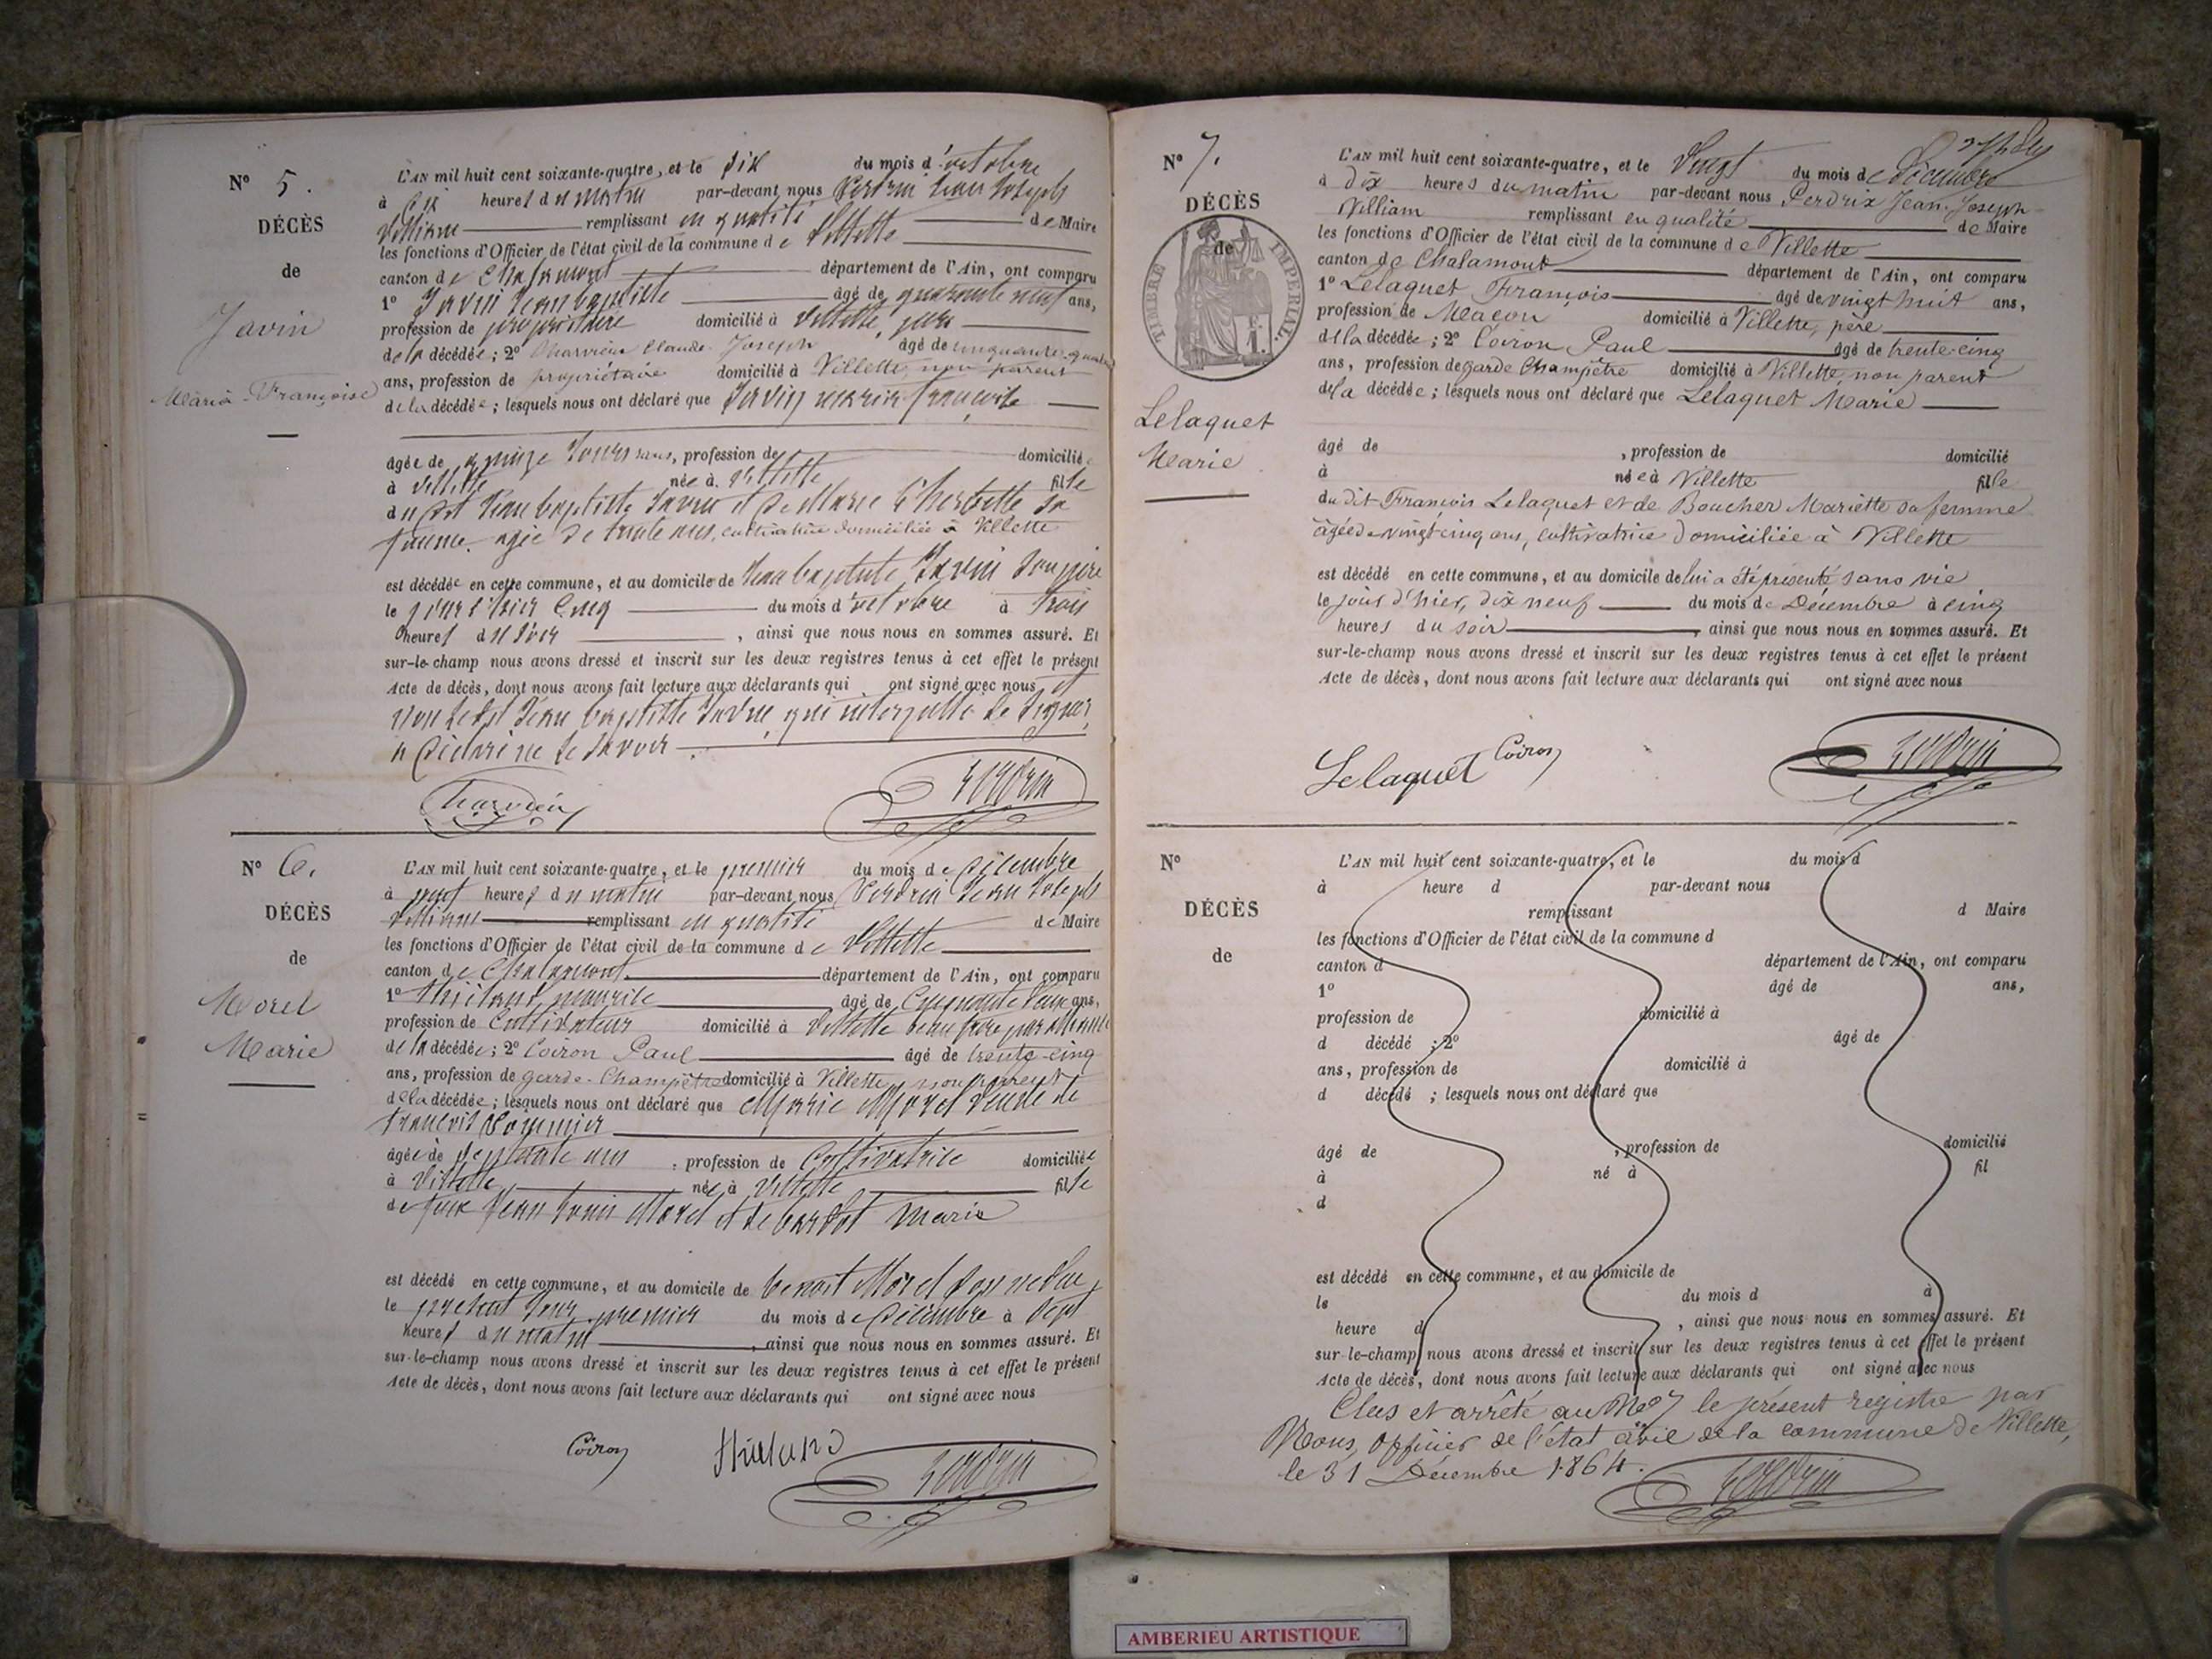 N° 5.
DÉCÈS
de
Javin
Maria-Françoise
L'AN mil huit cent soixante-quatre, et le six du mois d'octobre
à six heures du matin par-devant nous Perdrix Jean Joseph
William remplissant en qualité de Maire
les fonctions d'Officier de l'état civil de la commune de Villette
canton de Chalamont département de l'Ain, ont comparu
1° Javin Jean baptiste âgé de quarante neuf ans,
profession de propriétaire domicilié à Villette, père
de la décédée; 2° Charvieu Claude Joseph âgé de cinquante-quatre
ans, profession de propriétaire domicilié à Villette, non parent
de la décédée; lesquels nous ont déclaré que Javin marie françoise
âgée de quinze jours ans, profession de domiciliée
à Villette née à Villette fille
du dit Jean baptiste Javin et de Marie Cherbette sa
femme agée de trente ans, cultivatrice domiciliée à Villette
est décédée en cette commune, et au domicile de Jean baptiste Javin son père
le jour d'hier Cinq du mois d'octobre à trois
heures du soir, ainsi que nous nous en sommes assuré. Et
sur-le-champ nous avons dressé et inscrit sur les deux registres tenus à cet effet le présent
Acte de décès, dont nous avons fait lecture aux déclarants qui ont signé avec nous et
non le dit Jean baptiste Javin, qui interpellé de signer,
a déclaré ne le savoir
Charvieu
Perdrix
N° 6.
DÉCÈS
de
Morel
Marie
L'AN mil huit cent soixante-quatre, et le premier du mois de décembre
à neuf heures du matin par-devant nous Perdrix Jean Joseph
William remplissant en qualité de Maire
les fonctions d'Officier de l'état civil de la commune de Villette
canton de Chalamont département de l'Ain, ont comparu
1° maurice âgé de Cinquante deux ans,
profession de Cultivateur domicilié à Villette beau frère par alliance
de la décédée; 2° Coiron Paul âgé de trente-cinq
ans, profession de garde-Champêtre domicilié à Villette, non parent
de la décédée; lesquels nous ont déclaré que Marie Morel Veuve de
françois
âgée de septante ans, profession de Cultivatrice domiciliée
à Villette, née à Villette fille
de feux Jean Louis Morel et de Marie
est décédé en cette commune, et au domicile de benoit Morel son neveu,
le présent jour premier du mois de décembre à sept
heures du matin, ainsi que nous nous en sommes assuré. Et
sur-le-champ nous avons dressé et inscrit sur les deux registres tenus à cet effet le présent
Acte de décès, dont nous avons fait lecture aux déclarants qui ont signé avec nous
Coiron
Perdrix
N° 7.
DÉCÈS
de
TIMBRE IMPERIAL
Lelaquet
Marie
L'AN mil huit cent soixante-quatre, et le Vingt du mois de Décembre
à dix heures du matin par-devant nous Perdrix Jean-Joseph-
William remplissant en qualité de Maire
les fonctions d'Officier de l'état civil de la commune de Villette
canton de Chalamont département de l'Ain, ont comparu
1° Lelaquet François âgé de vingt huit ans,
profession de Maçon domicilié à Villette, père
de la décédée; 2° Coiron Paul âgé de trente-cinq
ans, profession de garde Champêtre domicilié à Villette, non parent
de la décédée; lesquels nous ont déclaré que Lelaquet Marie
âgé de , profession de domicilié
à née à Villette fille
du dit François Lelaquet et de Boucher Mariette sa femme
âgée de vingt cinq ans, cultivatrice domiciliée à Villette
est décédé en cette commune, et au domicile de lui a été présenté sans vie
le jour d'hier, dix neuf du mois de Décembre à cinq
heures du soir, ainsi que nous nous en sommes assuré. Et
sur-le-champ nous avons dressé et inscrit sur les deux registres tenus à cet effet le présent
Acte de décès, dont nous avons fait lecture aux déclarants qui ont signé avec nous
Lelaquet Coiron Perdrix
N°
DÉCÈS
de
L'AN mil huit cent soixante-quatre, et le du mois d
à heure d par-devant nous
remplissant d Maire
les fonctions d'Officier de l'état civil de la commune d
canton d département de l'Ain, ont comparu
1° âgé de ans,
profession de domicilié à
d décédé ; 2° âgé de
ans, profession de domicilié à
d décédé ; lesquels nous ont déclaré que
âgé de , profession de domicilié
à né à fil
d
est décédé en cette commune, et au domicile de
le du mois d à
heure d , ainsi que nous nous en sommes assuré. Et
sur-le-champ nous avons dressé et inscrit sur les deux registres tenus à cet effet le présent
Acte de décès, dont nous avons fait lecture aux déclarants qui ont signé avec nous
Clos et arrêté au N° 7 le présent registre par
Nous, Officier de l'état civil de la commune de Villette,
le 31 Décembre 1864.
Perdrix
AMBERIEU ARTISTIQUE